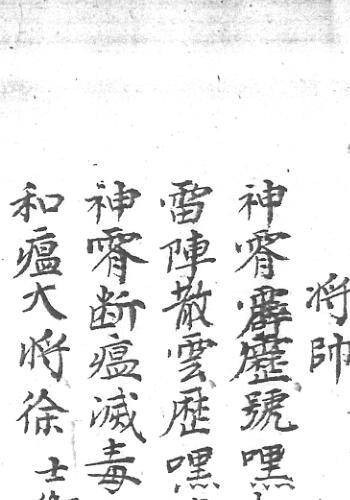 将帥
神霄霹靂號嘿
雷陣散雲歴嘿
神霄断瘟滅毒
和瘟大将徐士